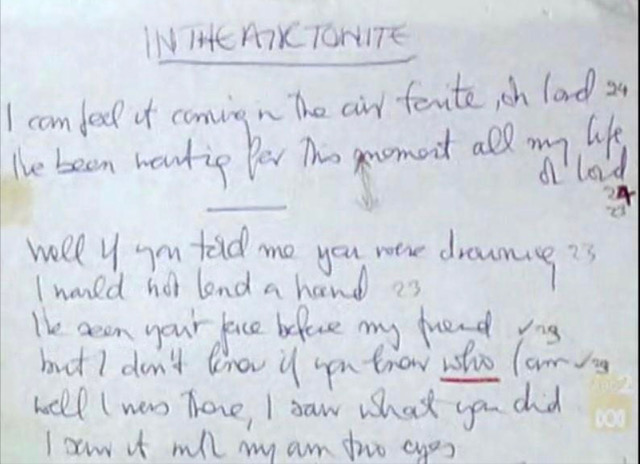 IN THE AIR TONITE
I can feel it coming in the air tonite, oh lord 24
I've been waiting for this moment all my life
Oh lord
24
23
Well if you told me you were drowning 23
I would not lend a hand 23
I've seen your face before my friend √ 29
but I don't know if you know who I am √ 29
Well I was there, I saw what you did
I saw it with my own two eyes
2